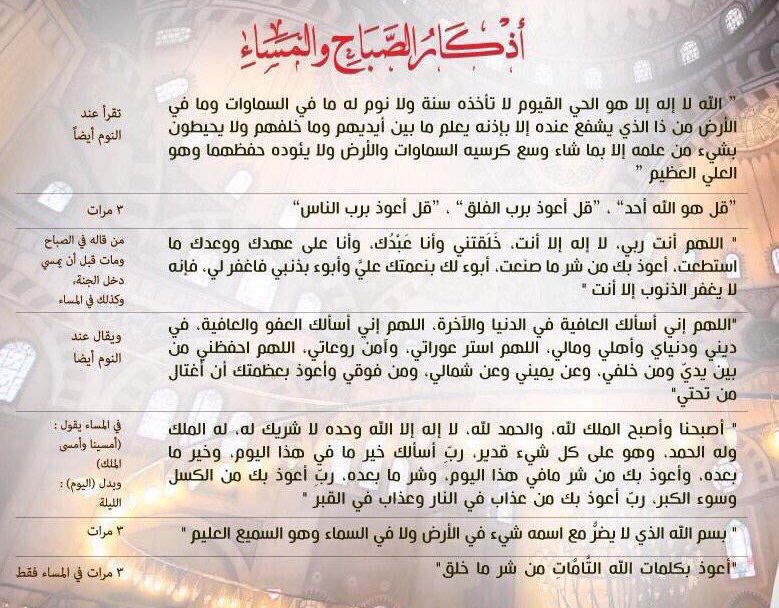 أذكار الصَّبَاحِ والمَسَاءِ
" الله لا إله إلا هو الحي القيوم لا تأخذه سنة ولا نوم له ما في السماوات وما في
الأرض من ذا الذي يشفع عنده إلا بإذنه يعلم ما بين أيديهم وما خلفهم ولا يحيطون
بشيء من علمه إلا بما شاء وسع كرسيه السماوات والأرض ولا يئوده حفظهما وهو
العلي العظيم "
تقرأ عند
النوم أيضاً
"قل هو الله أحد" ، "قل أعوذ برب الفلق" ، "قل أعوذ برب الناس"
٣ مرات
" اللهم أنت ربي، لا إله إلا أنت، خَلَقتني وأنا عَبْدُك، وأنا على عهدك ووعدك ما
استطعت، أعوذ بك من شر ما صنعت، أبوء لك بنعمتك عليَّ وأبوء بذنبي فاغفر لي، فإنه
لا يغفر الذنوب إلا أنت "
من قاله في الصباح
ومات قبل أن يمسي
دخل الجنة،
وكذلك في المساء
"اللهم إني أسألك العافية في الدنيا والآخرة، اللهم إني أسألك العفو والعافية، في
ديني ودنياي وأهلي ومالي، اللهم استر عوراتي، وآمن روعاتي، اللهم احفظني من
بين يديّ ومن خلفي، وعن يميني وعن شمالي، ومن فوقي وأعوذ بعظمتك أن أُغتال
من تحتي"
ويقال عند
النوم أيضا
" أصبحنا وأصبح الملك لله، والحمد لله، لا إله إلا الله وحده لا شريك له، له الملك
وله الحمد، وهو على كل شيء قدير، ربِّ أسألك خير ما في هذا اليوم، وخير ما
بعده، وأعوذ بك من شر مافي هذا اليوم، وشر ما بعده، ربّ أعوذ بك من الكسل
وسوء الكبر، ربّ أعوذ بك من عذاب في النار وعذاب في القبر "
في المساء يقول :
(أمسينا وأمسى
الملك)
وبدل (اليوم) :
الليلة
" بسم الله الذي لا يضرُّ مع اسمه شيء في الأرض ولا في السماء وهو السميع العليم "
٣ مرات
"أعوذ بكلمات الله التَّامَّاتِ من شر ما خلق"
٣ مرات في المساء فقط